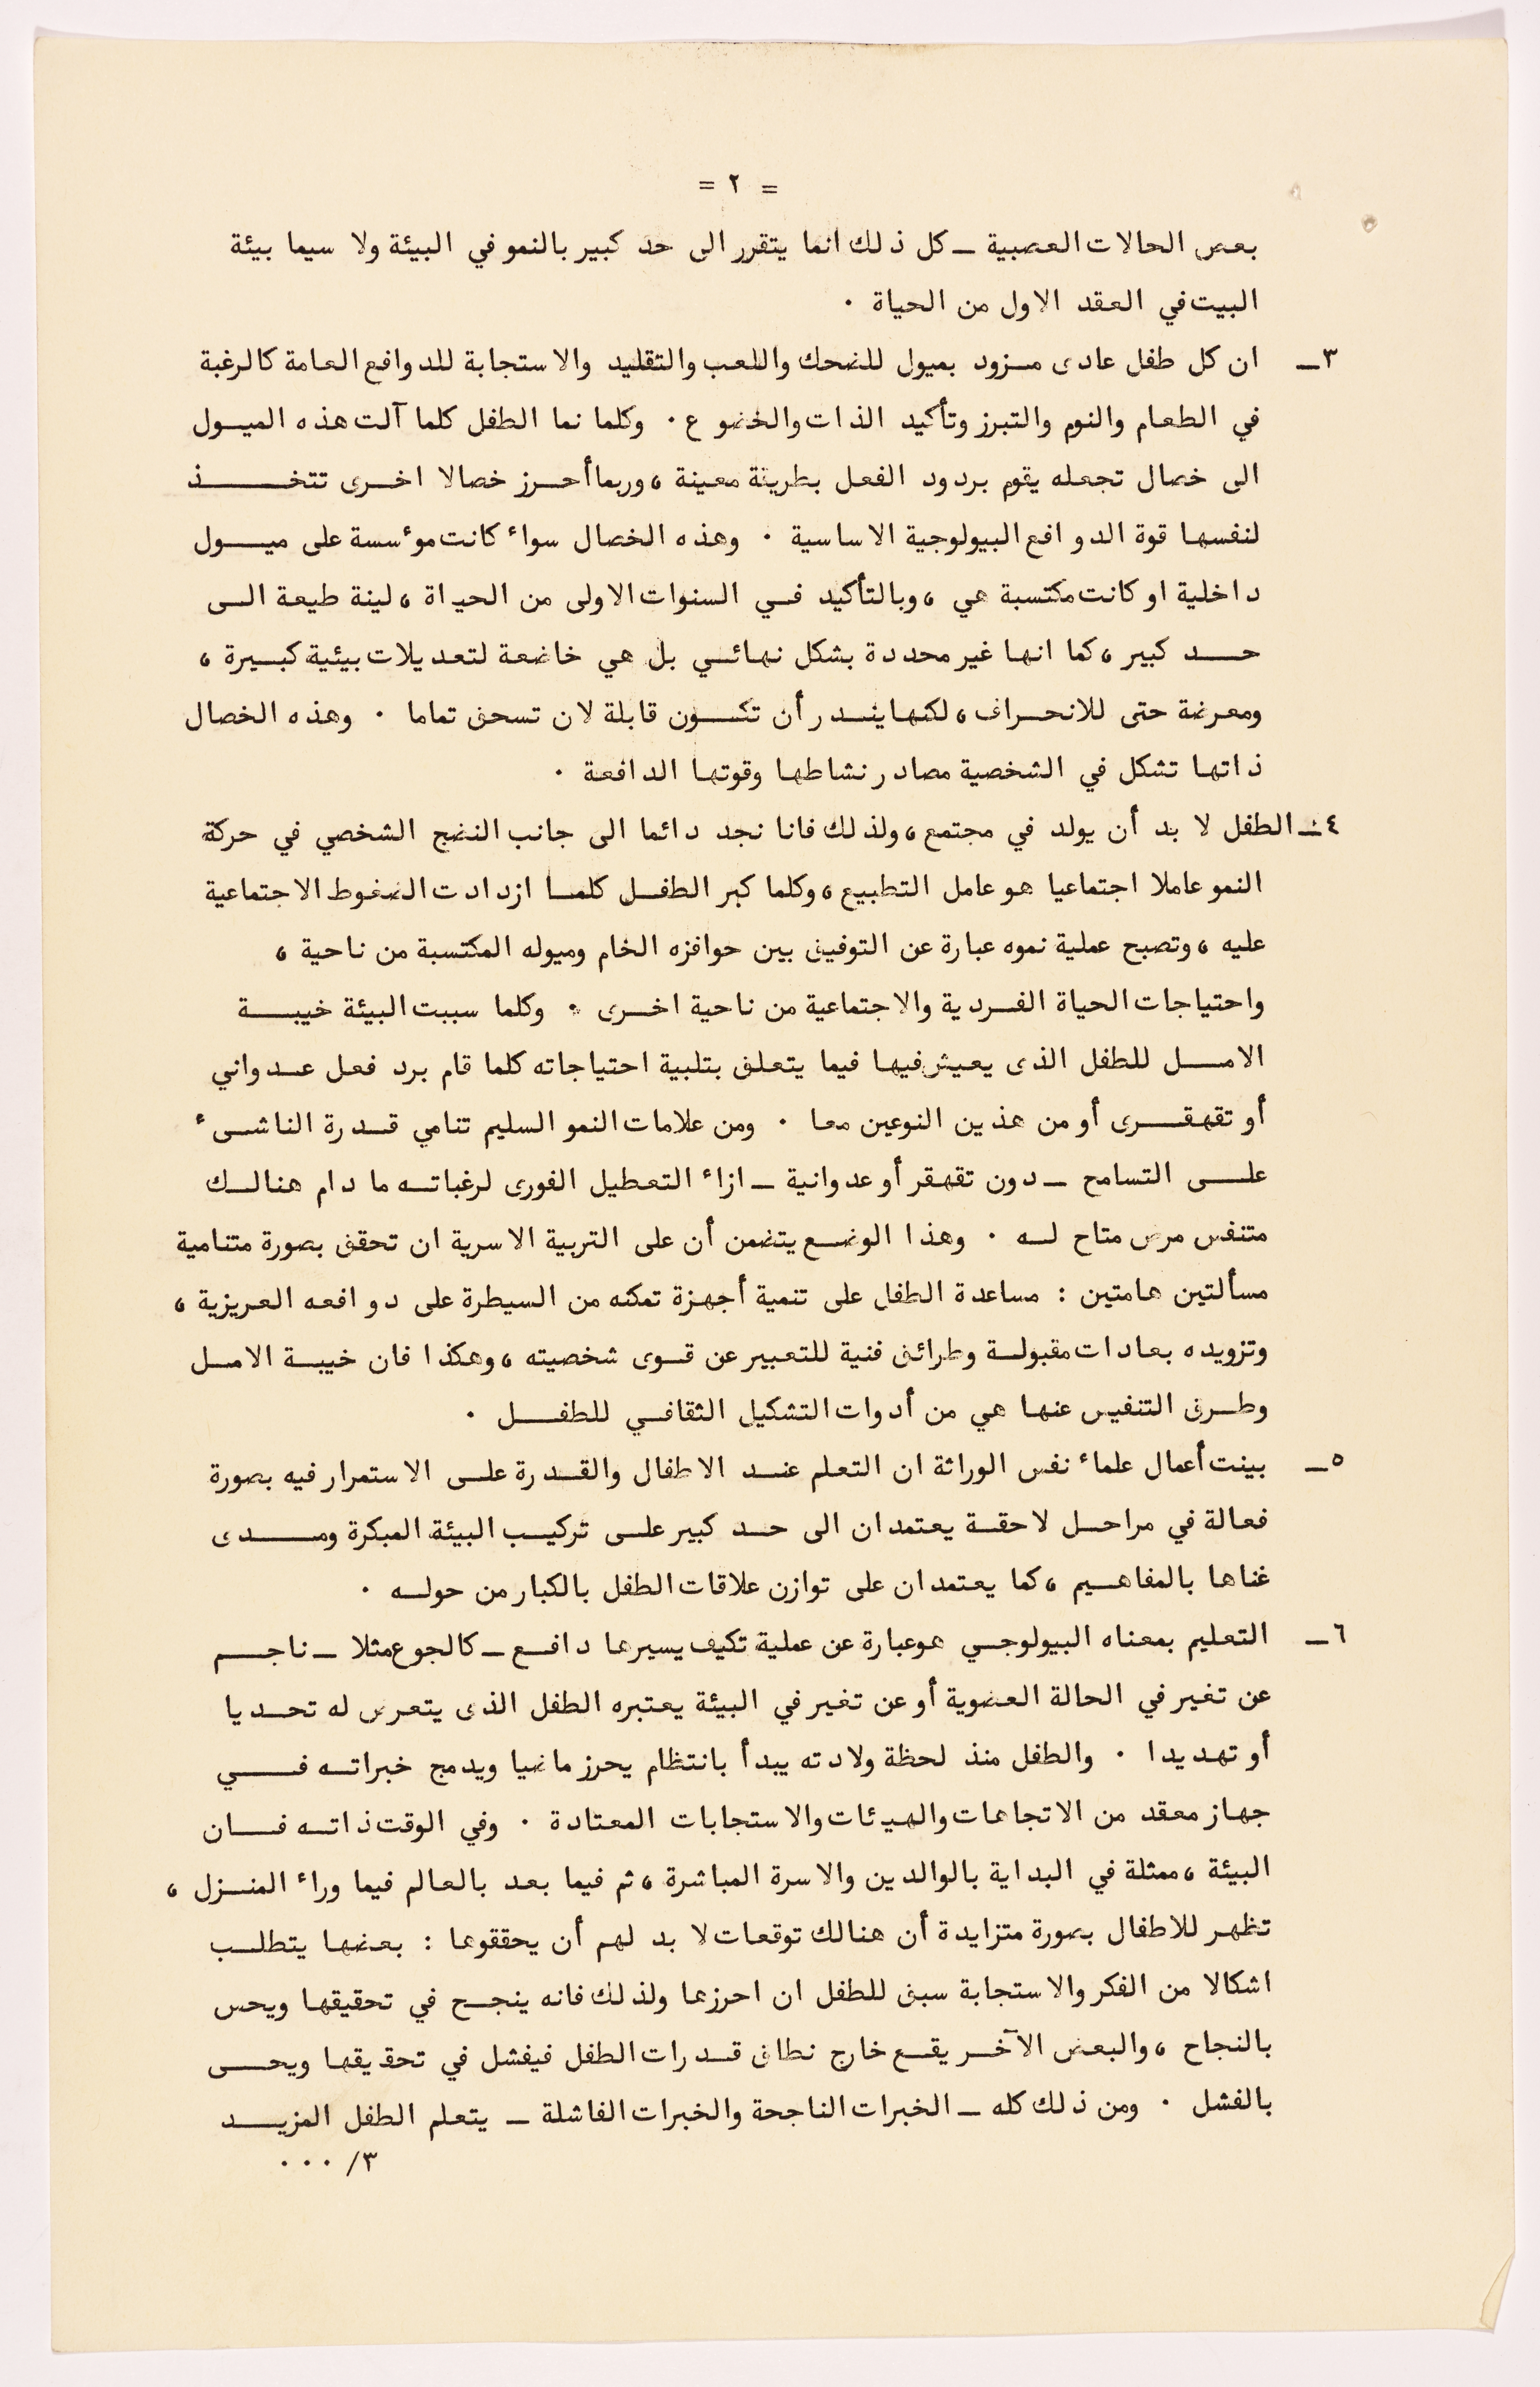 = ٢ =
بعض الحالات العصبية ــ كل ذلك انما يتقرر الى حد كبير بالنمو في البيئة ولا سيما بيئة
البيت في العقد الاول من الحياة ٠
٣ــ ان كل طفل عادى مزود بميول للضحك واللعب والتقليد والاستجابة للدوافع العامة كالرغبة
في الطعام والنوم والتبرز وتأكيد الذات والخضوع ٠ وكلما نما الطفل كلما آلت هذه الميول
الى خصال تجعله يقوم بردود الفعل بطريقة معينة ، وربما أحرز خصالا اخرى تتخذ
لنفسها قوة الدوافع البيولوجية الاساسية ٠ وهذه الخصال سواء كانت موءسسة على ميول
داخلية او كانت مكتسبة هي ، وبالتأكيد في السنوات الاولى من الحياة ، لينة طيعة الى
حد كبير ، كما انها غير محددة بشكل نهائي بل هي خاضعة لتعديلات بيئية كبيرة ،
ومعرضة حتى للانحراف ، لكنها يندر أن تكون قابلة لان تسحق تماما ٠ وهذه الخصال
ذاتها تشكل في الشخصية مصادر نشاطها وقوتها الدافعة ٠
٤ــ الطفل لا بد أن يولد في مجتمع ، ولذلك فانا نجد دائما الى جانب النضج الشخصي في حركة
النمو عاملا اجتماعيا هو عامل التطبيع ، وكلما كبر الطفل كلما ازدادت الضغوط الاجتماعية
عليه ، وتصبح عملية نموه عبارة عن التوفيق بين حوافزه الخام وميوله المكتسبة من ناحية ،
واحتياجات الحياة الفردية والاجتماعية من ناحية اخرى ٠ وكلما سببت البيئة خيبة
الامل للطفل الذى يعيش فيها فيما يتعلق بتلبية احتياجاته كلما قام برد فعل عدواني
أو تقهقرى أو من هذين النوعين معا ٠ ومن علامات النمو السليم تنامي قدرة الناشىء
على التسامح ــ دون تقهقر أو عدوانية ــ ازاء التعطيل الفورى لرغباته ما دام هنالك
متنفس مرض متاح له ٠ وهذا الوضع يتضمن أن على التربية الاسرية ان تحقق بصورة متنامية
مسألتين هامتين : مساعدة الطفل على تنمية أجهزة تمكنه من السيطرة على دوافعه العريزية ،
وتزويده بعادات مقبولة وطرائق فنية للتعبير عن قوى شخصيته ، وهكذا فان خيبة الامل
وطرق التنفيس عنها هي من أدوات التشكيل الثقافي للطفل ٠
٥ــ بينت أعمال علماء نفس الوراثة ان التعلم عند الاطفال والقدرة على الاستمرار فيه بصورة
فعالة في مراحل لاحقة يعتمدان الى حد كبير على تركيب البيئة المبكرة ومدى
غناها بالمفاهيم ، كما يعتمدان على توازن علاقات الطفل بالكبار من حوله ٠
٦ــ التعليم بمعناه البيولوجي هو عبارة عن عملية تكيف يسيرها دافع ــ كالجوع مثلا ــ ناجم
عن تغير في الحالة العضوية أو عن تغير في البيئة يعتبره الطفل الذى يتعرض له تحديا
أو تهديدا ٠ والطفل منذ لحظة ولادته يبدأ بانتظام يحرز ماضيا ويدمج خبراته في
جهاز معقد من الاتجاهات والهيئات والاستجابات المعتادة ٠ وفي الوقت ذاته فان
البيئة ، ممثلة في البداية بالوالدين والاسرة المباشرة ، ثم فيما بعد بالعالم فيما وراء المنزل ،
تظهر للاطفال بصورة متزايدة أن هنالك توقعات لا بد لهم أن يحققوها : بعضها يتطلب
اشكالا من الفكر والاستجابة سبق للطفل ان احرزها ولذلك فانه ينجح في تحقيقها ويحس
بالنجاح ، والبعض الآخر يقع خارج نطاق قدرات الطفل فيفشل في تحقيقها ويحس
بالفشل ٠ ومن ذلك كله ــ الخبرات الناجحة والخبرات الفاشلة ــ يتعلم الطفل المزيد
٣/ ٠٠٠